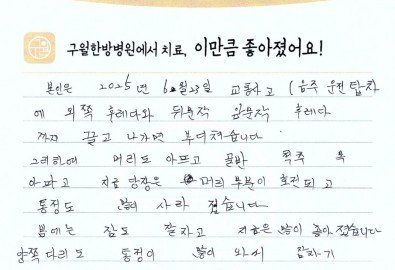 구월한방병원에서 치료, 이만큼 좋아졌어요!
본인은 2025년 6월 23일 교통사고 (음주 운전 탑차
에 외쪽 후레다와 뒤문작 앞문작 후레다
까지 끌고 나가면 부디쳐습니다
그리하여 머리도 아프고 골반 척추 목
아파고 지금 당장은 머리 부분이 호전 되고
통정도 많이 사라 젔습니다
밤에는 잠도 잘자고 지금은 많이 좋아 졌습니다
양쪽 다리도 통정이 많이 와서 잠자기